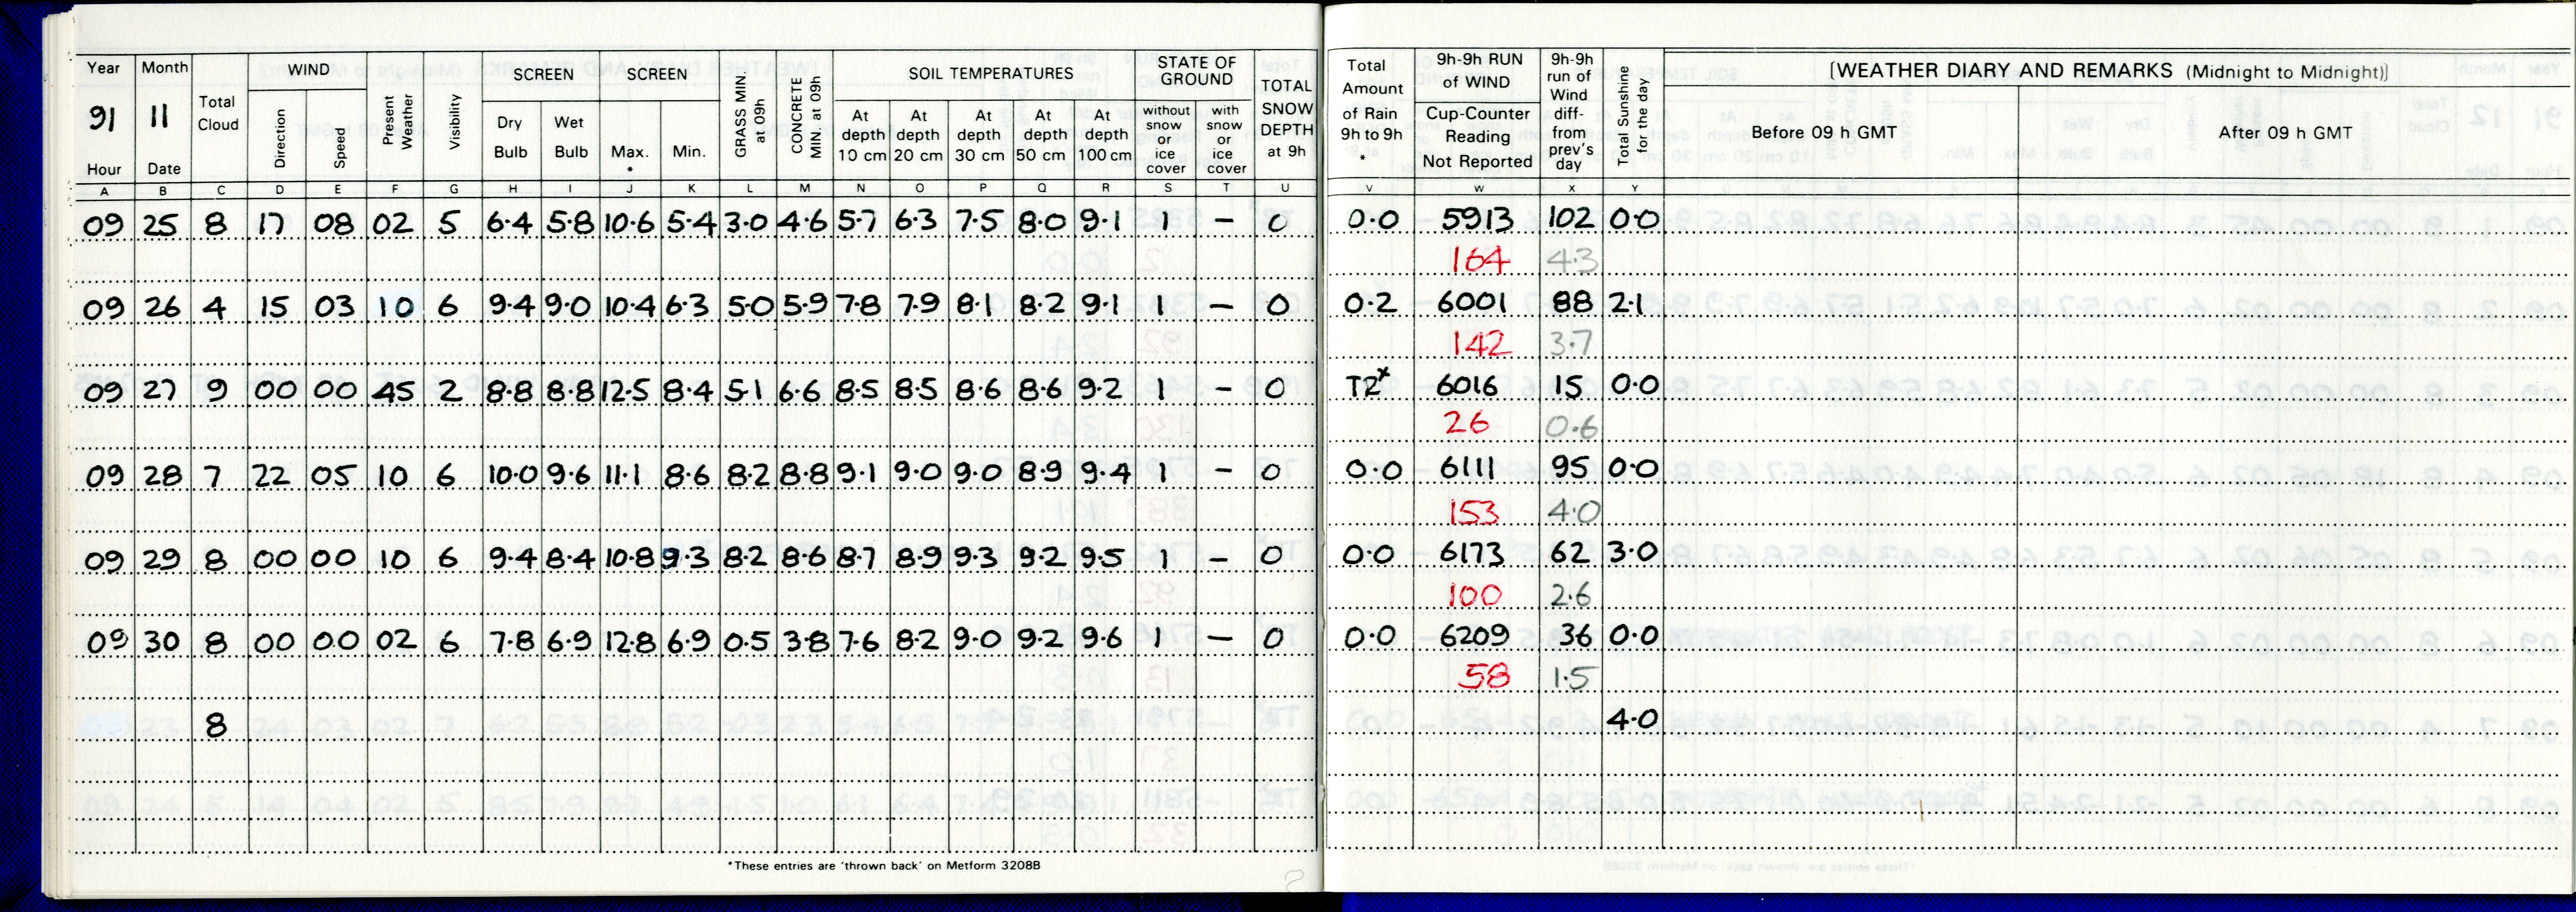 Year Month WIND SCREEN SCREEN SOIL TEMPERATURES STATE OF GROUND
91 11 Total Cloud Direction Speed Present Weather Visibility Dry Bulb Wet Bulb Max. * Min. GRASS MIN at 09h CONCRETE MIN at 09h At depth 10 cm At depth 20 cm At depth 30 cm At depth 50 cm At depth 100 cm without snow or ice cover with snow or ice cover TOTAL SNOW DEPTH at 9h
Hour Date
A B C D E F G H I J K L M N O P Q R S T U
09 25 8 17 08 02 5 6.4 5.8 10.6 5.4 3.0 4.6 5.7 6.3 7.5 8.0 9.1 1 – 0
09 26 4 15 03 10 6 9.4 9.0 10.4 6.3 5.0 5.9 7.8 7.9 8.1 8.2 9.1 1 – 0
09 27 9 00 00 45 2 8.8 8.8 12.5 8.4 5.1 6.6 8.5 8.5 8.6 8.6 9.2 1 – 0
09 28 7 22 05 10 6 10.0 9.6 11.1 8.6 8.2 8.8 9.1 9.0 9.0 8.9 9.4 1 – 0
09 29 8 00 00 10 6 9.4 8.4 10.8 9.3 8.2 8.6 8.7 8.9 9.3 9.2 9.5 1 – 0
09 30 8 00 00 02 6 7.8 6.9 12.8 6.9 0.5 3.8 7.6 8.2 9.0 9.2 9.6 1 – 0
8
*These entries are 'thrown back' on Metform 3208B
Total Amount of Rain 9h to 9h * 9h-9h RUN of WIND Cup-Counter Reading Not Reported * 9h-9h run of Wind diff- from prev's day Total Sunshine for the day [WEATHER DIARY AND REMARKS (Midnight to Midnight)]
Before 09 h GMT After 09 h GMT
V W X Y
0.0 5913 102 0.0
164 4.3
0.2 6001 88 2.1
142 3.7
TR* 6016 15 0.0
26 0.6
0.0 6111 95 0.0
153 4.0
0.0 6173 62 3.0
100 2.6
0.0 6209 36 0.0
58 1.5
4.0